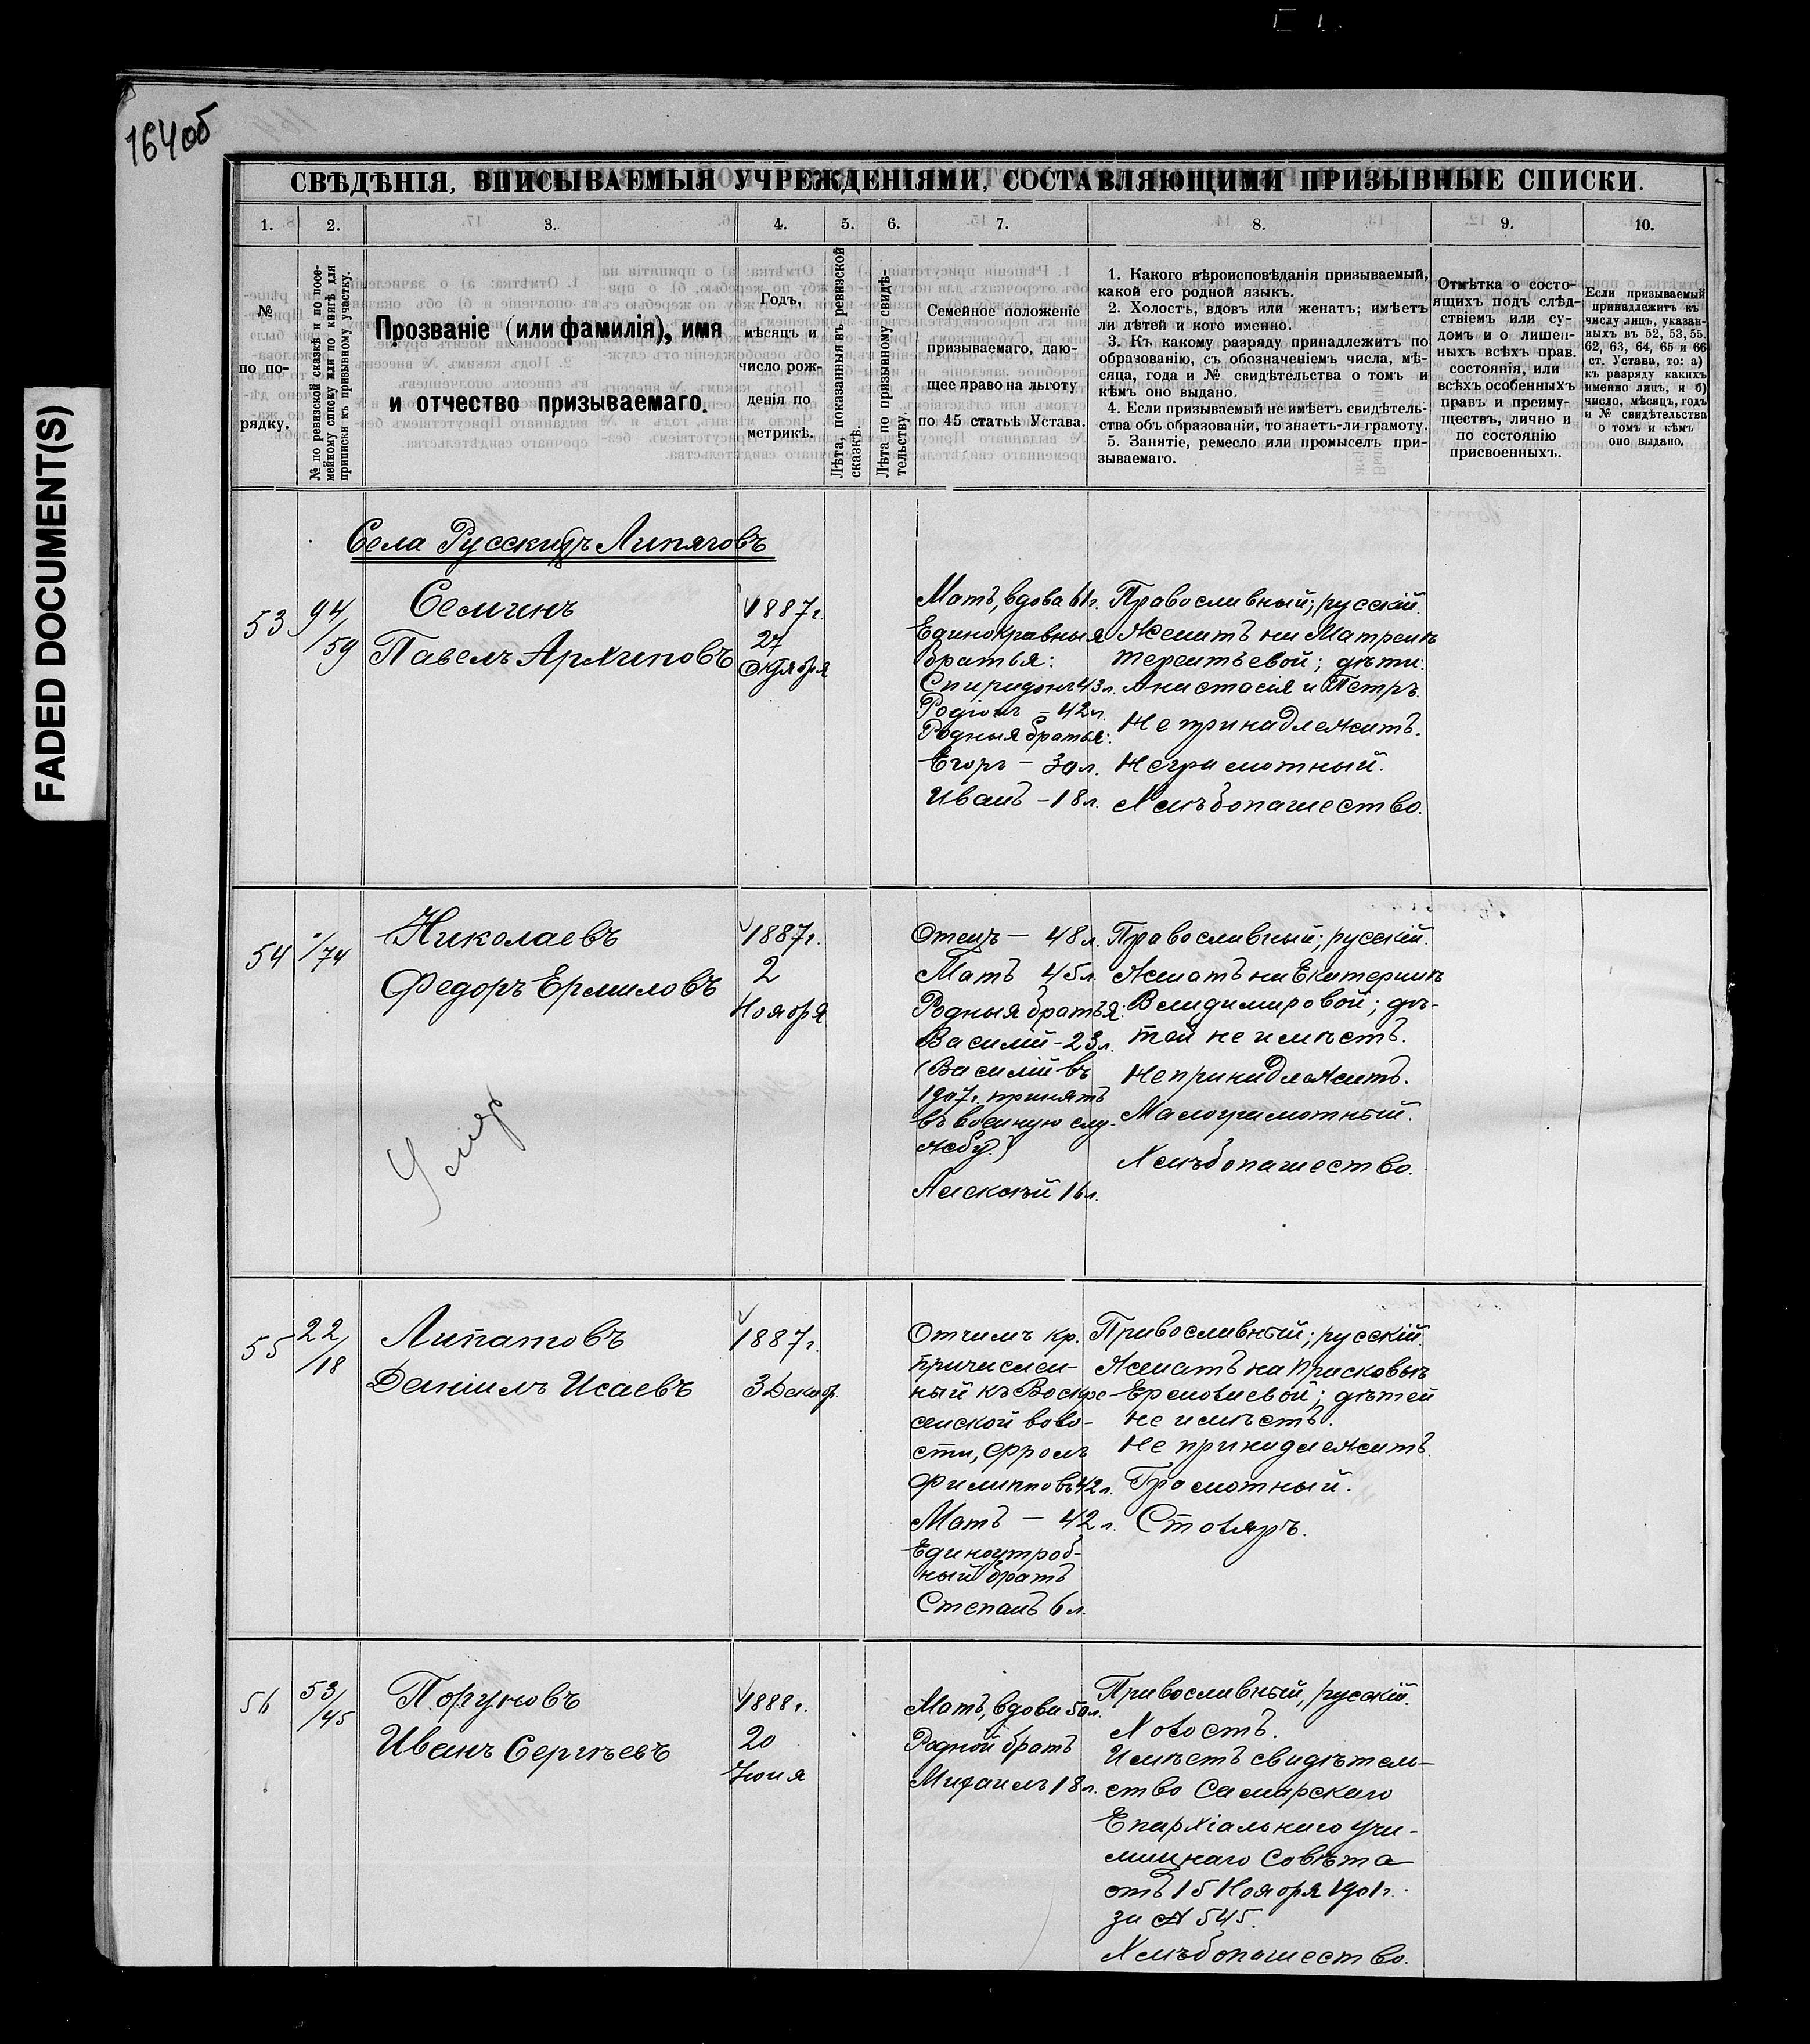 164об
FADED DOCUMENT(S)
СВѢДѢНІЯ, ВПИСЫВАЕМЫЯ УЧРЕЖДЕНІЯМИ, СОСТАВЛЯЮЩИМИ ПРИЗЫВНЫЕ СПИСКИ.
1.
2.
3.
4.
5.
6.
7.
8.
9.
10.
№
по по-
рядку.
№ по ревизской сказкѣ и по посе-
мейному списку или по книгѣ для
приписки къ призывному участку.
Прозваніе (или фамилія), имя
и отчество призываемаго.
Годъ,
мѣсяцъ и
число рож-
денія по
метрикѣ.
Лѣта, показанныя въ ревизской
сказкѣ.
Лѣта по призывному свидѣ-
тельству.
Семейное положеніе
призываемаго, даю-
щее право на льготу
по 45 статьѣ Устава.
1. Какого вѣроисповѣданія призываемый,
какой его родной языкъ.
2. Холостъ, вдовъ или женатъ; имѣетъ
ли дѣтей и кого именно.
3. Къ какому разряду принадлежитъ по
образованію, съ обозначеніемъ числа, мѣ-
сяца, года и № свидѣтельства о томъ и
кѣмъ оно выдано.
4. Если призываемый не имѣетъ свидѣтель-
ства объ образованіи, то знаетъ-ли грамоту.
5. Занятіе, ремесло или промыселъ при-
зываемаго.
Отмѣтка о состо-
ящихъ подъ слѣд-
ствіемъ или су-
домъ и о лишен-
ныхъ всѣхъ прав.
состоянія, или
всѣхъ особенныхъ
правъ и преиму-
ществъ, лично и
по состоянію
присвоенныхъ.
Если призываемый
принадлежитъ къ
числу лицъ, указан-
ныхъ въ 52, 53, 55,
62, 63, 64, 65 и 66
ст. Устава, то: а)
къ разряду какихъ
именно лицъ, и б)
число, мѣсяцъ, годъ
и № свидѣтельства
о томъ и кѣмъ
оно выдано.
Села Русскихъ Липяговъ
53
94/59
Семинъ
Павелъ Архиповъ
1887г.
27
Октября
Мать, вдова 61г.
Единокравныя
братья:
Спиридонъ 43л.
Родіонъ – 42л.
Родныя братья:
Егоръ – 30л.
Иванъ – 18л.
Православный; русскій.
Женатъ на Матренѣ
Терентьевой; дѣти:
Анастасія и Петръ.
Не принадлежитъ.
Неграмотный.
Хлѣбопашество.
54
/74
Николаевъ
Федоръ Ермиловъ
Умер
1887г.
2
Ноября
Отецъ – 48л.
Мать 45л.
Родныя братья:
Василій – 23л.
(Василій въ
1907г. принятъ
въ военную слу-
жбу.)
Алексѣй 16л.
Православный; русскій.
Женатъ на Екатеринѣ
Владимировой; дѣ-
тей не имѣетъ.
Не принадлежитъ.
Малограмотный.
Хлѣбопашество.
55
22/18
Липатовъ
Даніилъ Исаевъ
1887г.
3 Декабр.
Отчимъ кр.
причислен-
ный къ Воскре-
сенской воло-
сти, Фролъ
Филипповъ 42л.
Мать – 42л.
Единоутроб-
ный братъ
Степанъ 6л.
Православный; русскій.
Женатъ на Прасковьѣ
Еремѣевой; дѣтей
не имѣетъ.
Не принадлежитъ.
Грамотный.
Столяръ.
56
53/45
Поруновъ
Иванъ Сергѣевъ
1888г.
20
Іюня
Мать, вдова 50л.
Родной братъ
Михаилъ 18л.
Православный, русскій.
Холостъ.
Имѣетъ свидѣтель-
ство Самарскаго
Епархіальнаго Учи-
лищнаго Совѣта
отъ 15 Ноября 1901г.
за № 545.
Хлѣбопашество.